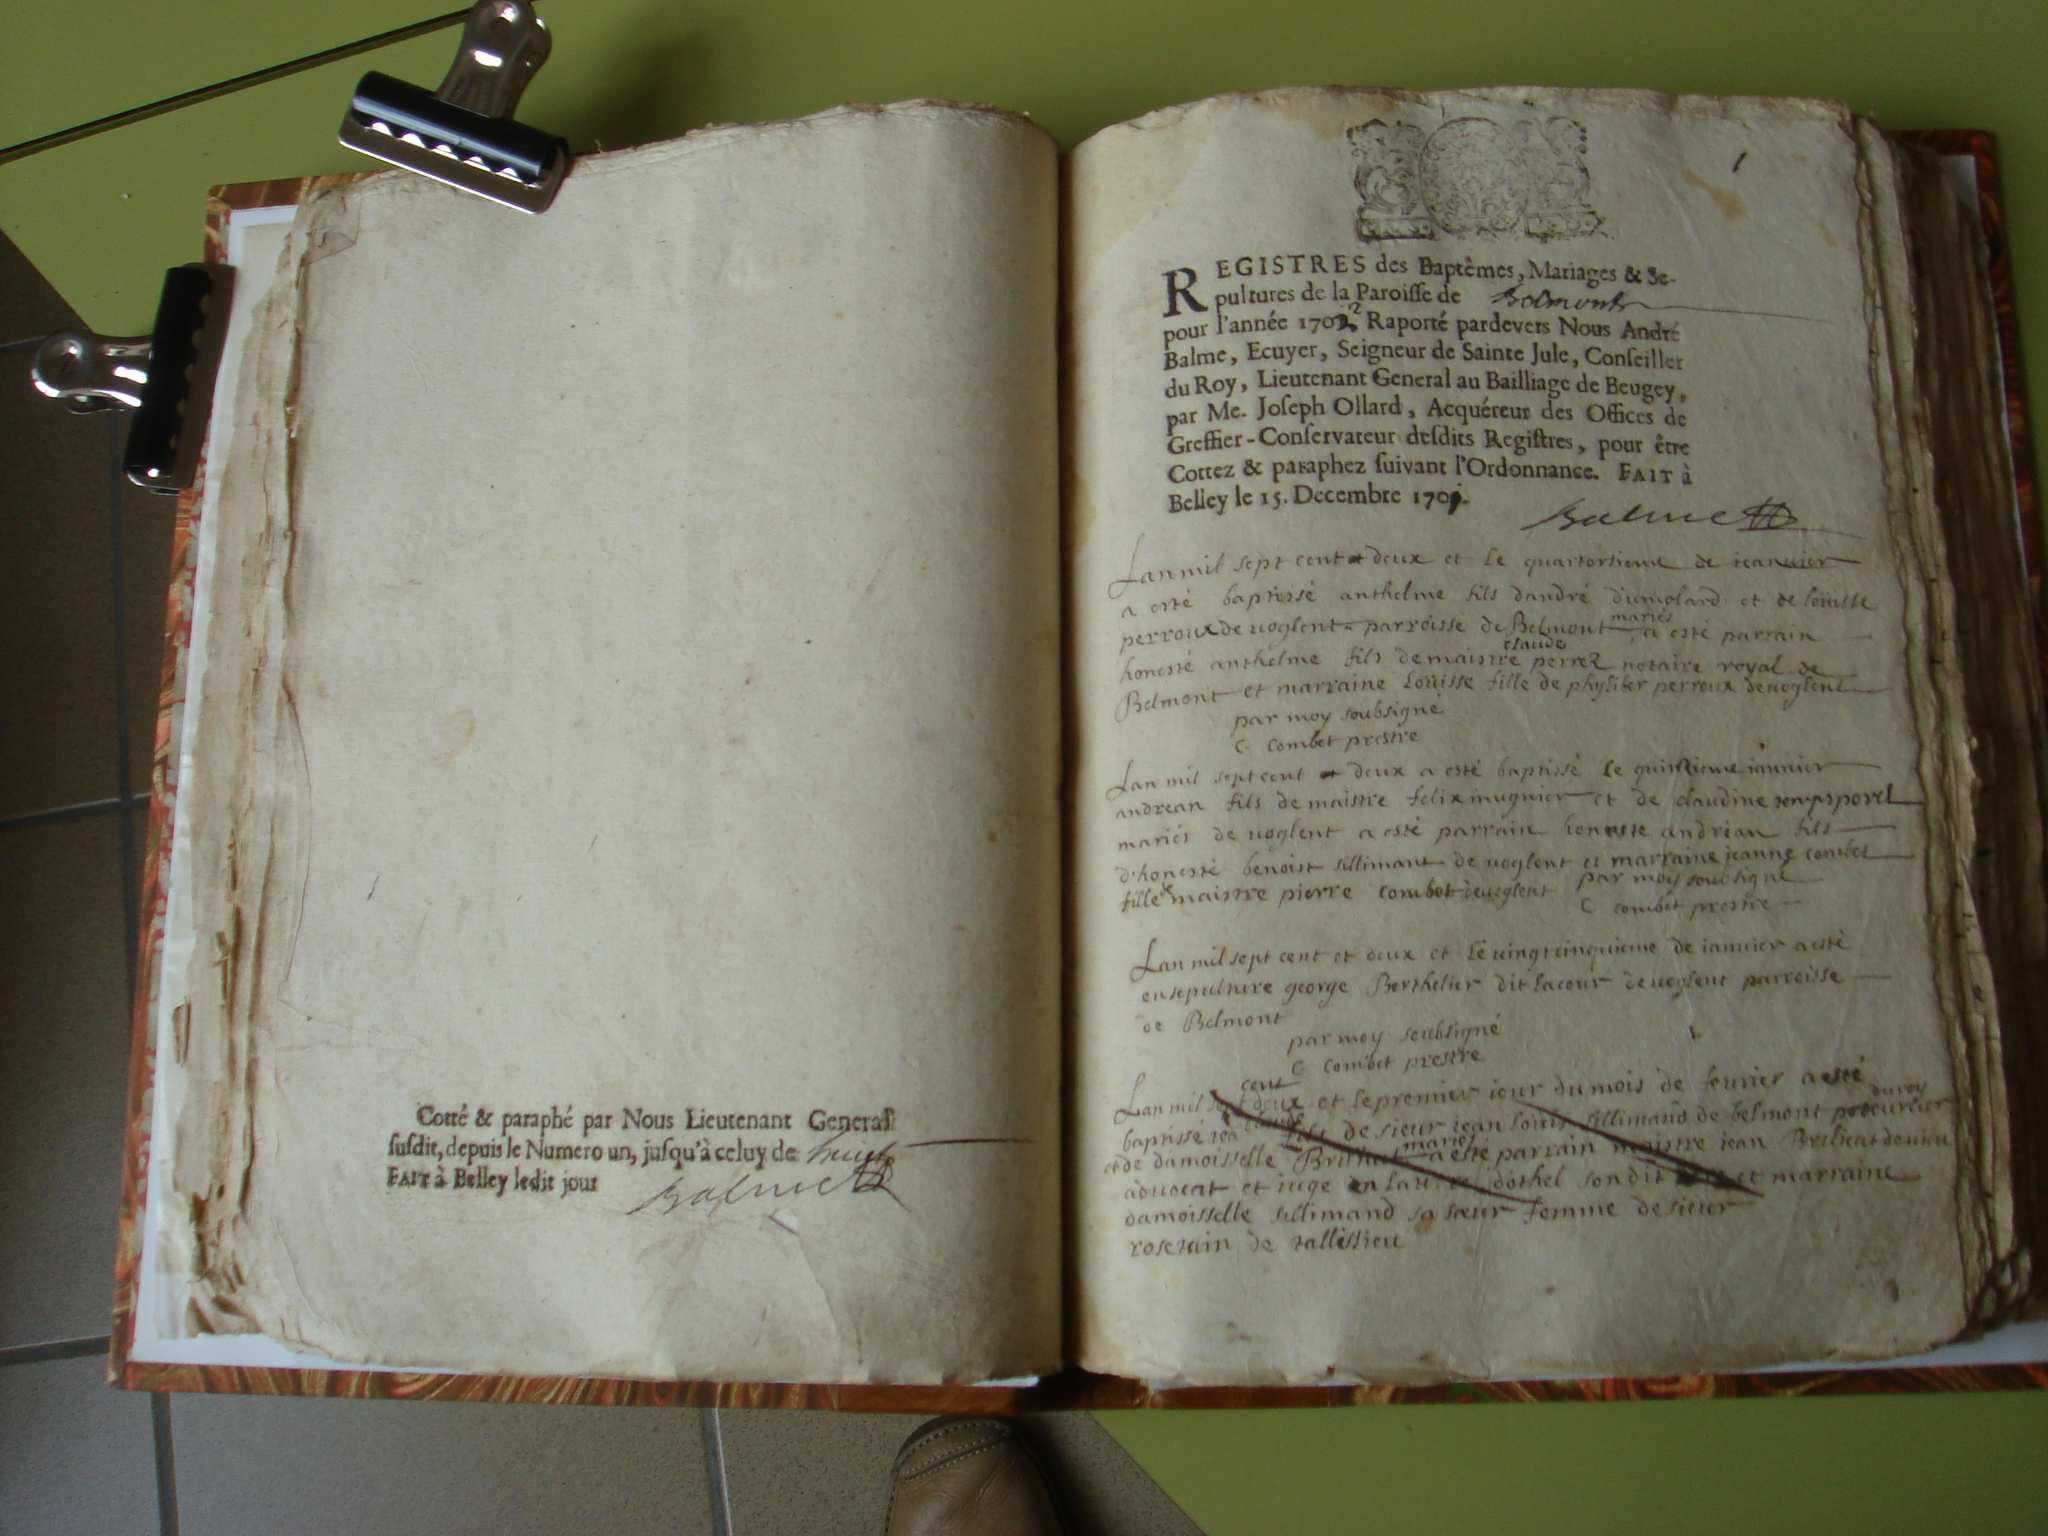 Cotté & paraphé par Nous Lieutenant General
susdit, depuis le Numero un, jusqu'à celuy de huict
FAIT à Belley ledit jour
Balme
1
REGISTRES des Baptêmes, Mariages & Se-
pultures de la Paroisse de Belmont
pour l'année 1702 Raporté pardevers Nous André
Balme, Ecuyer, Seigneur de Sainte Jule, Conseiller
du Roy, Lieutenant General au Bailliage de Beugey,
par Me. Joseph Ollard, Acquéreur des Offices de
Greffier-Conservateur desdits Registres, pour être
Cottez & paraphez suivant l'Ordonnance. FAIT à
Belley le 15. Decembre 1701.
Balme
Lan mil sept cent et deux et le quartorsieme de ieanvier
a esté baptissé anthelme fils dandré dumolard et de loüisse
perroux de uoglent parroisse de Belmont mariés a esté parrain
honesté anthelme fils de maistre claude perret notaire royal de
Belmont et marraine Loüisse fille de phyliber perroux de uoglent
par moy soubsigne
C combet prestre
Lan mil sept cent et deux a esté baptissé le quinzieme iannier
andrean fils de maistre felix mugnier et de claudine
mariés de uoglent a esté parrain honeste andrean fils
d'honesté benoist sillimant de uoglent et marraine jeanne combet
fille de maistre pierre combet de uoglent par moy soubsigne
C combet prestre
Lan mil sept cent et deux et le uingtcinquieme de ianuier a esté
ensepulture george Berthelier dit lacour de uoglent parroisse
de Belmont
par moy soubsigné
C combet prestre
Lan mil sept cent deux et le premier iour du mois de feurier a esté
baptissé fils de sieur iean loüis sillimand de belmont procureur du roy
et de damoisselle Brillat mariés a esté parrain maistre iean Brilliat de uieu
aduocat et iuge dothel son dit et marraine
damoisselle sillimand sa sœur femme de sieur
rosetain de tallissieu